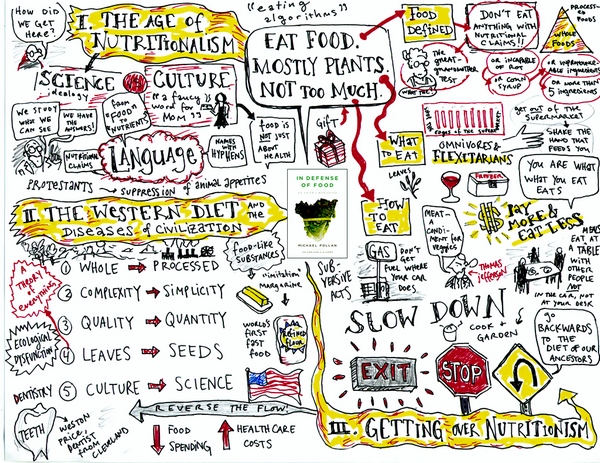 HOW DID WE GET HERE?
I. THE AGE of NUTRITIONALISM
SCIENCE
ideology
CULTURE
"a fancy word for MOM"
WE STUDY WHAT WE CAN SEE
WE HAVE THE ANSWERS!
from "FOOD" to "NUTRIENTS"
NUTRITIONAL CLAIMS
LANGUAGE
NAMES WITH HYPHENS
PROTESTANTS → SUPPRESSION of animal appetites
"eating algorithms"
EAT FOOD.
MOSTLY PLANTS.
NOT TOO MUCH.
food is NOT JUST ABOUT HEALTH
GIFT
FOOD DEFINED
DON'T EAT ANYTHING WITH NUTRITIONAL CLAIMS!!
PROCESSED FOODS
WHOLE FOODS
The great-grandmother TEST
WHAT THE
or INCAPABLE OF ROT
or CORN SYRUP
or unpronounceable ingredients
5 ingredients
WHAT TO EAT
LEAVES
edges of the supermarket
get out of the SUPERMARKET
SHAKE THE HAND THAT FEEDS YOU
OMNIVORES & FLEXITARIANS
YOU ARE WHAT WHAT YOU EAT EATS
HOW TO EAT
MEAT - A CONDIMENT FOR VEGGIES
THOMAS JEFFERSON
PAY MORE & EAT LESS
MEALS
EAT AT A TABLE WITH OTHER PEOPLE
NOT IN THE CAR, NOT AT YOUR DESK
GAS
DON'T GET FUEL WHERE YOUR CAR DOES
SUBVERSIVE ACTS
SLOW DOWN
COOK + GARDEN
GO BACKWARDS TO THE DIET OF OUR ANCESTORS
EXIT
STOP
III. GETTING OVER NUTRITIONISM
IN DEFENSE OF FOOD
MICHAEL POLLAN
II. THE WESTERN DIET AND THE DISEASES of CIVILIZATION
food-like SUBSTANCES
"imitation" margarine
WORLD'S FIRST FAST FOOD
REFINED FLOUR
A THEORY of everything
ECOLOGICAL DISFUNCTION
1 WHOLE → PROCESSED
2 COMPLEXITY → SIMPLICITY
3 QUALITY → QUANTITY
4 LEAVES → SEEDS
5 CULTURE → SCIENCE
REVERSE THE FLOW!
DENTISTRY
TEETH
WESTON PRICE, DENTIST FROM CLEVELAND
↓ FOOD SPENDING
↑ HEALTH CARE COSTS